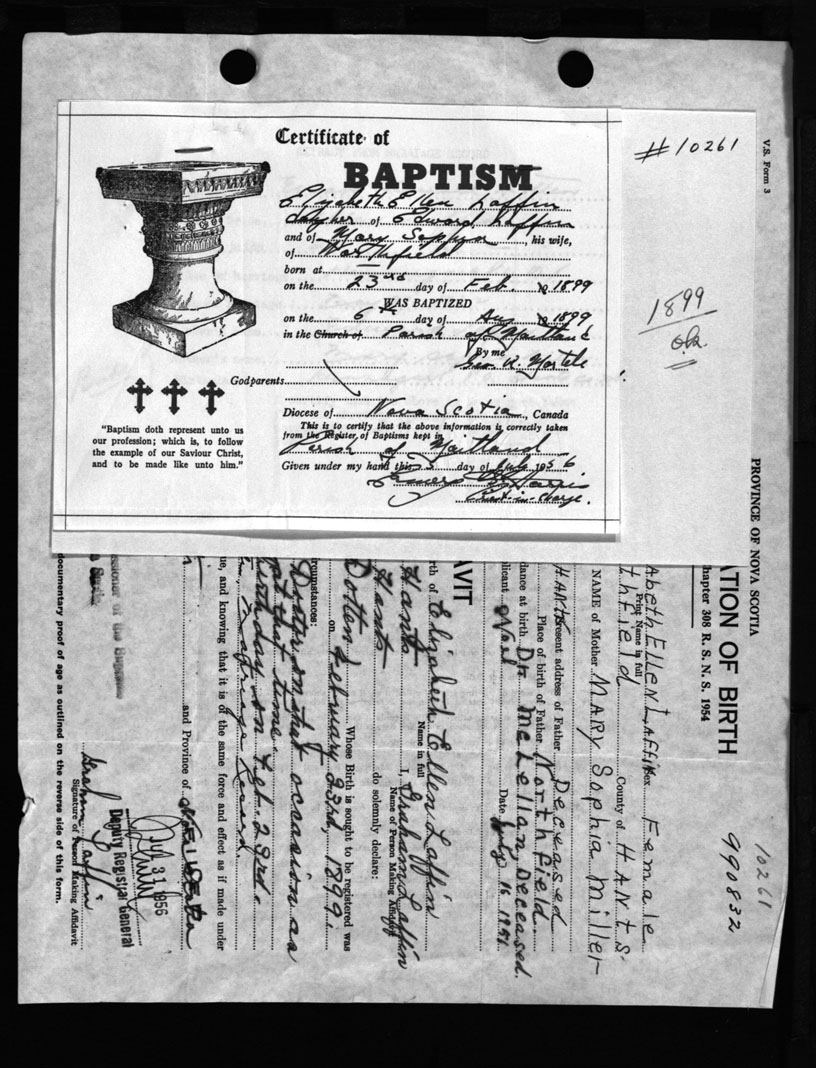 Certificate of
BAPTISM
Elizabeth Ellen Laffin
daughter of Edward Laffin
and of Mary Sophia, his wife,
of Northfield
born at
on the 23rd day of Feb 1899
WAS BAPTIZED
on the 6th day of Aug 1899
in the Church of Parish of Maitland
By me
Geo. R. Martell
Godparents
Diocese of Nova Scotia, Canada
This is to certify that the above information is correctly taken
from the Register of Baptisms kept in
Parish of Maitland
Given under my hand this 5 day of July 1956
Harris
Priest-in-charge.
"Baptism doth represent unto us
our profession; which is, to follow
the example of our Saviour Christ,
and to be made like unto him."
#10261
1899
o.k.
V.S. Form 3
PROVINCE OF NOVA SCOTIA
ATION OF BIRTH
hapter 308 R. S. N. S. 1954
10261
990832
abeth Ellen Laffin Sex Female
Print Name in full
thfield County of HANTS
NAME of Mother MARY Sophia Miller
HANTS
Present address of Father Deceased
Place of birth of Father Northfield
dance at birth Dr. McLellan, Deceased.
plicant Noel Date July 16 1956
AVIT
rth of Elizabeth Ellen Laffin
Name in full
Hants I, Graham Laffin
Name of Person Making Affidavit
Hants do solemnly declare:
Whose Birth is sought to be registered was
on February 23rd, 1899.
ircumstances:
that occasion as
at that time.
birthday on Feb. 23rd.
Marriage Record.
ue, and knowing that it is of the same force and effect as if made under
and Province of Nova Scotia
July 31 1956
Deputy Registrar General
Graham Laffin
Signature of Person Making Affidavit
documentary proof of age as outlined on the reverse side of this form.